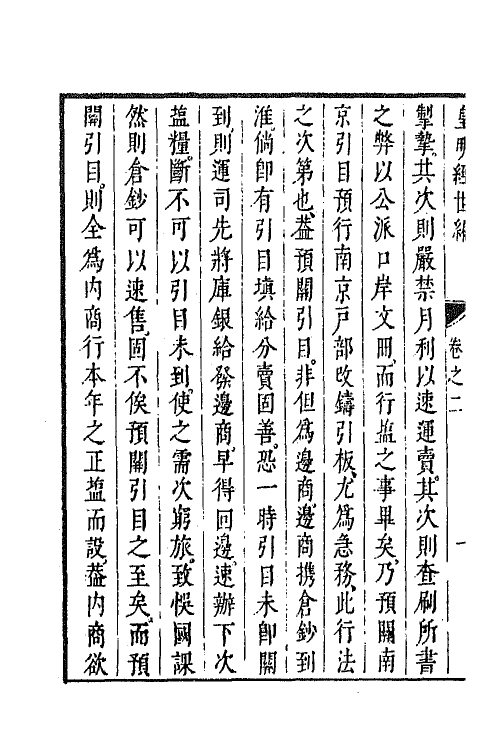 皇明經世編 卷之二 一
掣摯其次則嚴禁月利以速運賣其次則查刷所書
之弊以公派口岸文冊而行塩之事畢矣乃預關南
京引目預行南京戸部改鑄引板尤為急務此行法
之次第也葢預關引目非但為邊商邊商携倉鈔到
淮倘即有引目填給分賣固善恐一時引目未即關
到則運司先將庫銀給發邊商早得回邊速辦下次
塩糧斷不可以引目未到使之需次窮旅致悞國課
然則倉鈔可以速售固不俟預關引目之至矣而預
關引目則全為内商行本年之正塩而設葢内商欲